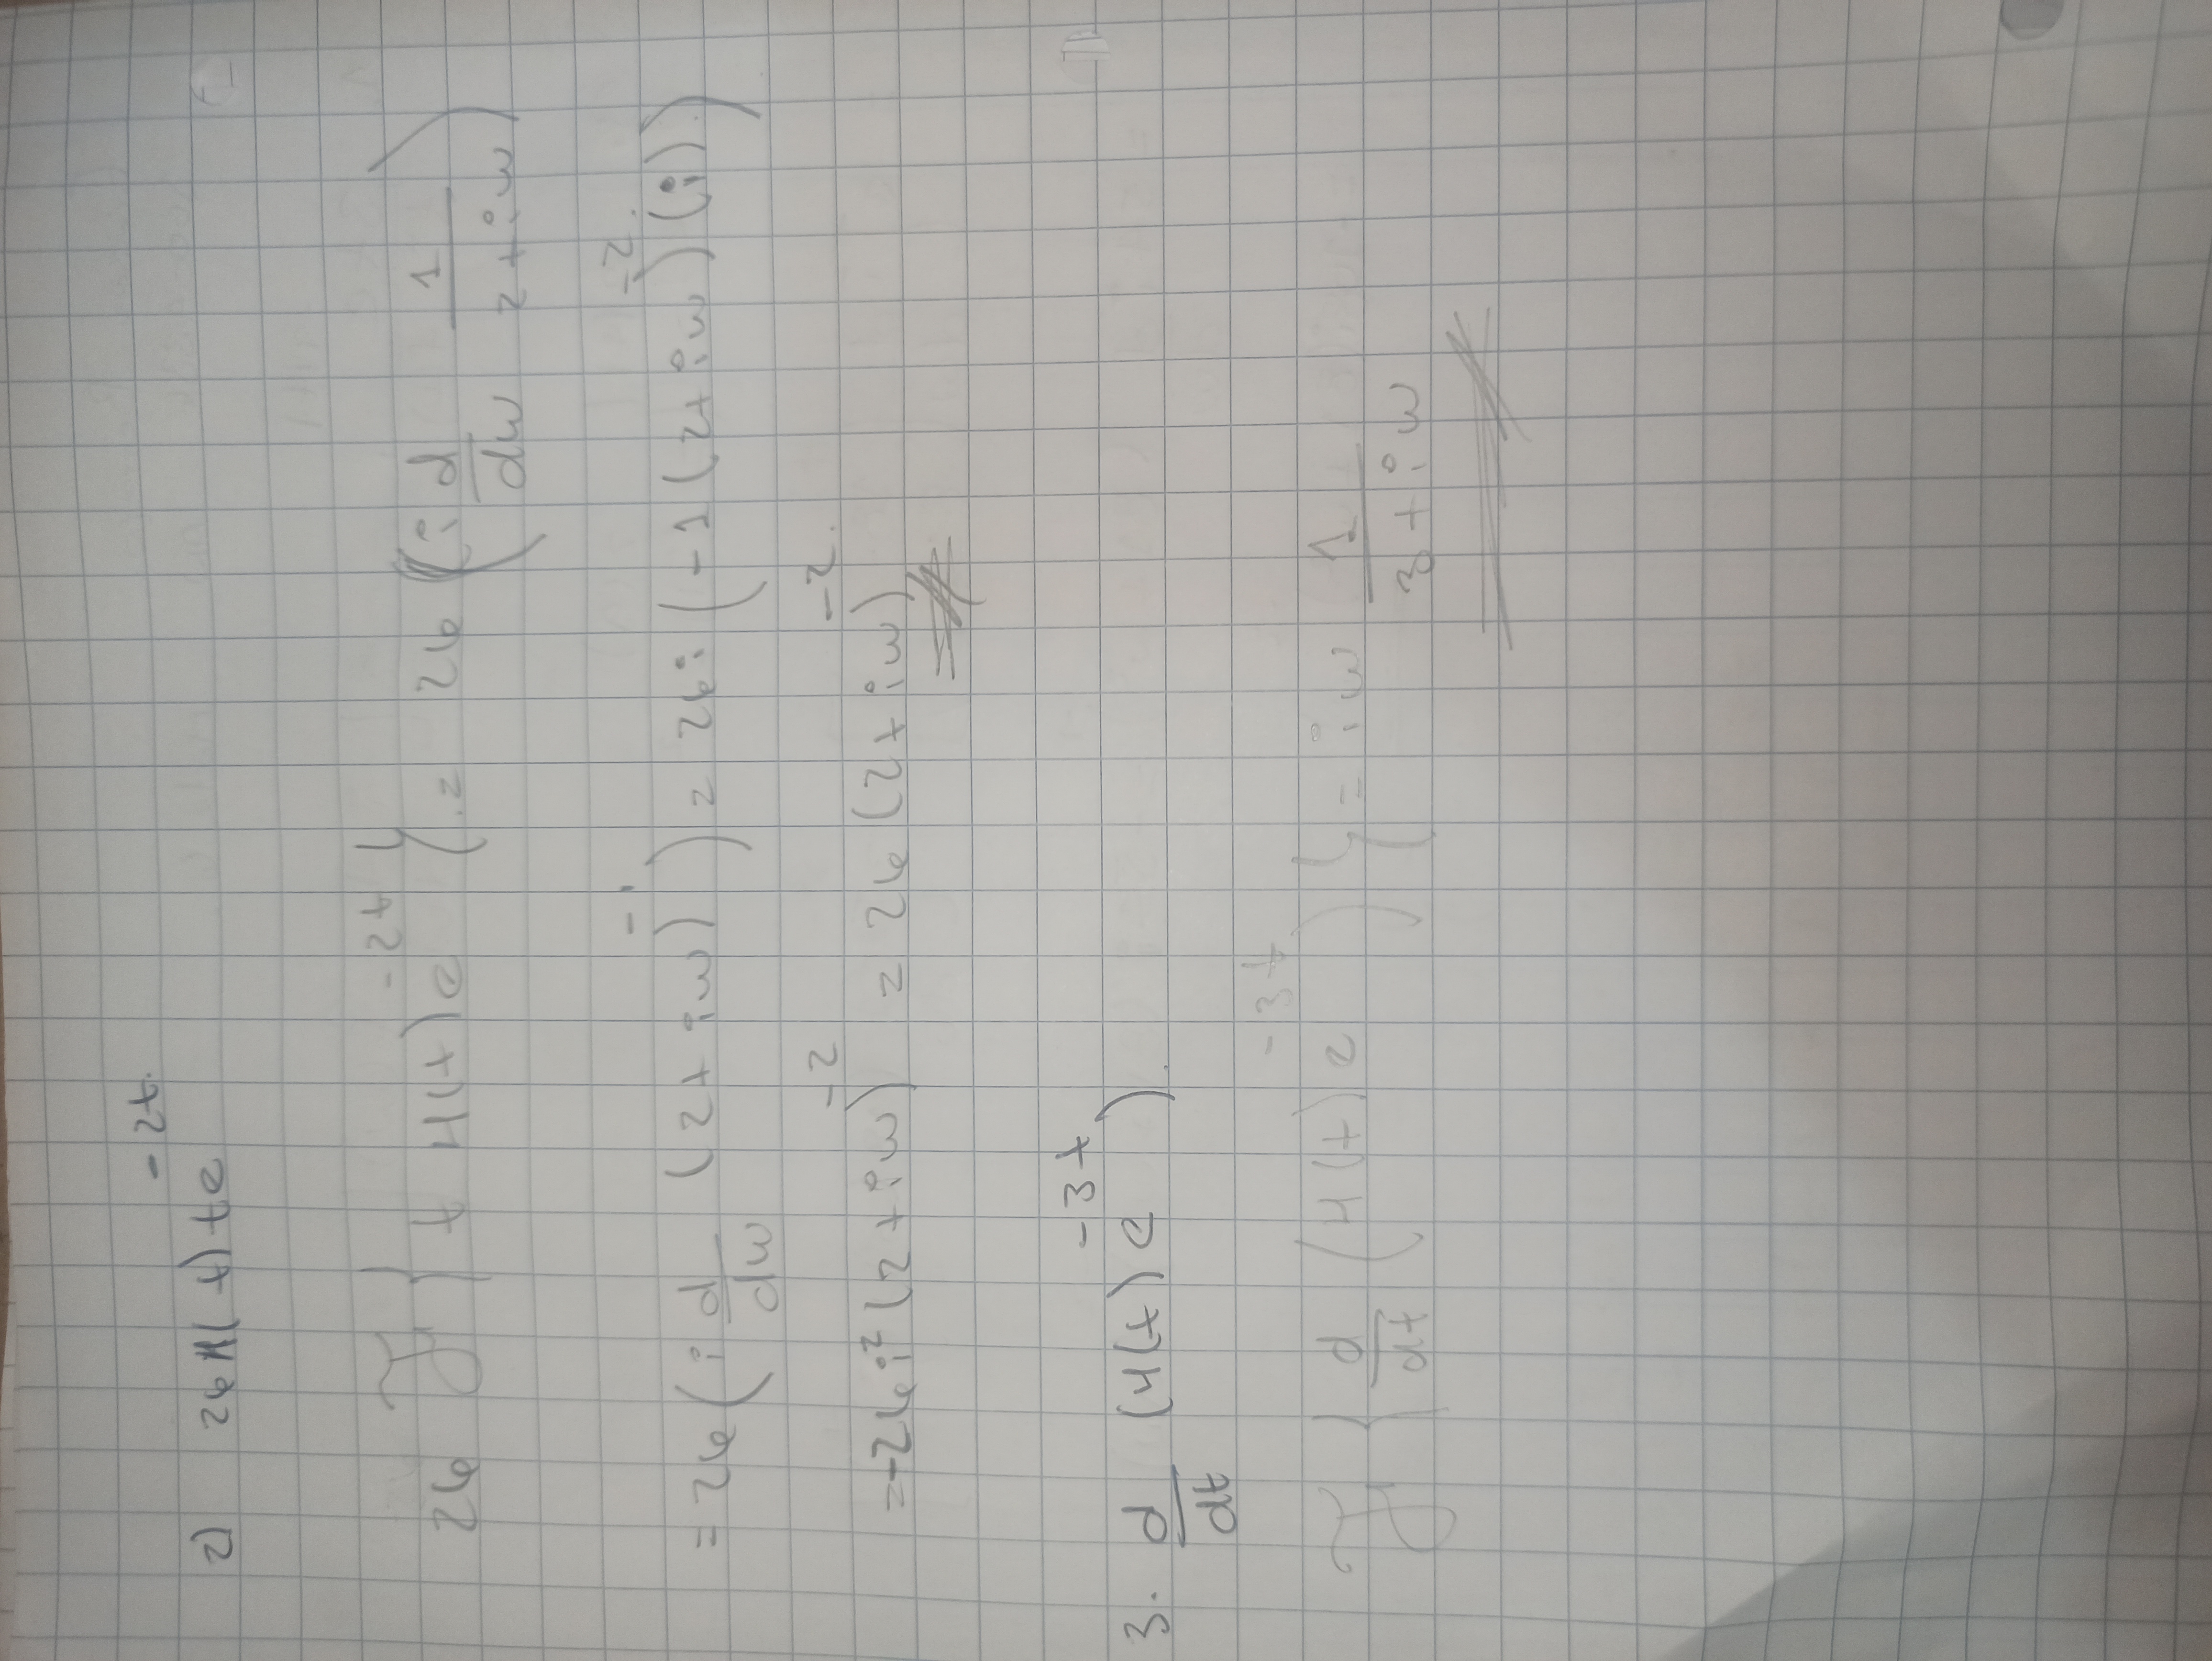 2) 26H(t)te^{-2t}
26 ℱ{t H(t)e^{-2t}} = 26 (i d/dw 1/(2+iw))
= 26 (i d/dw (2+iw)^{-1}) = 26i (-1(2+iw)^{-2}(i))
= -26i²(2+iw)^{-2} = 26(2+iw)^{-2}
3. d/dt (H(t)e^{-3t}).
ℱ{d/dt (H(t)e^{-3t})} = iw 1/(3+iw)